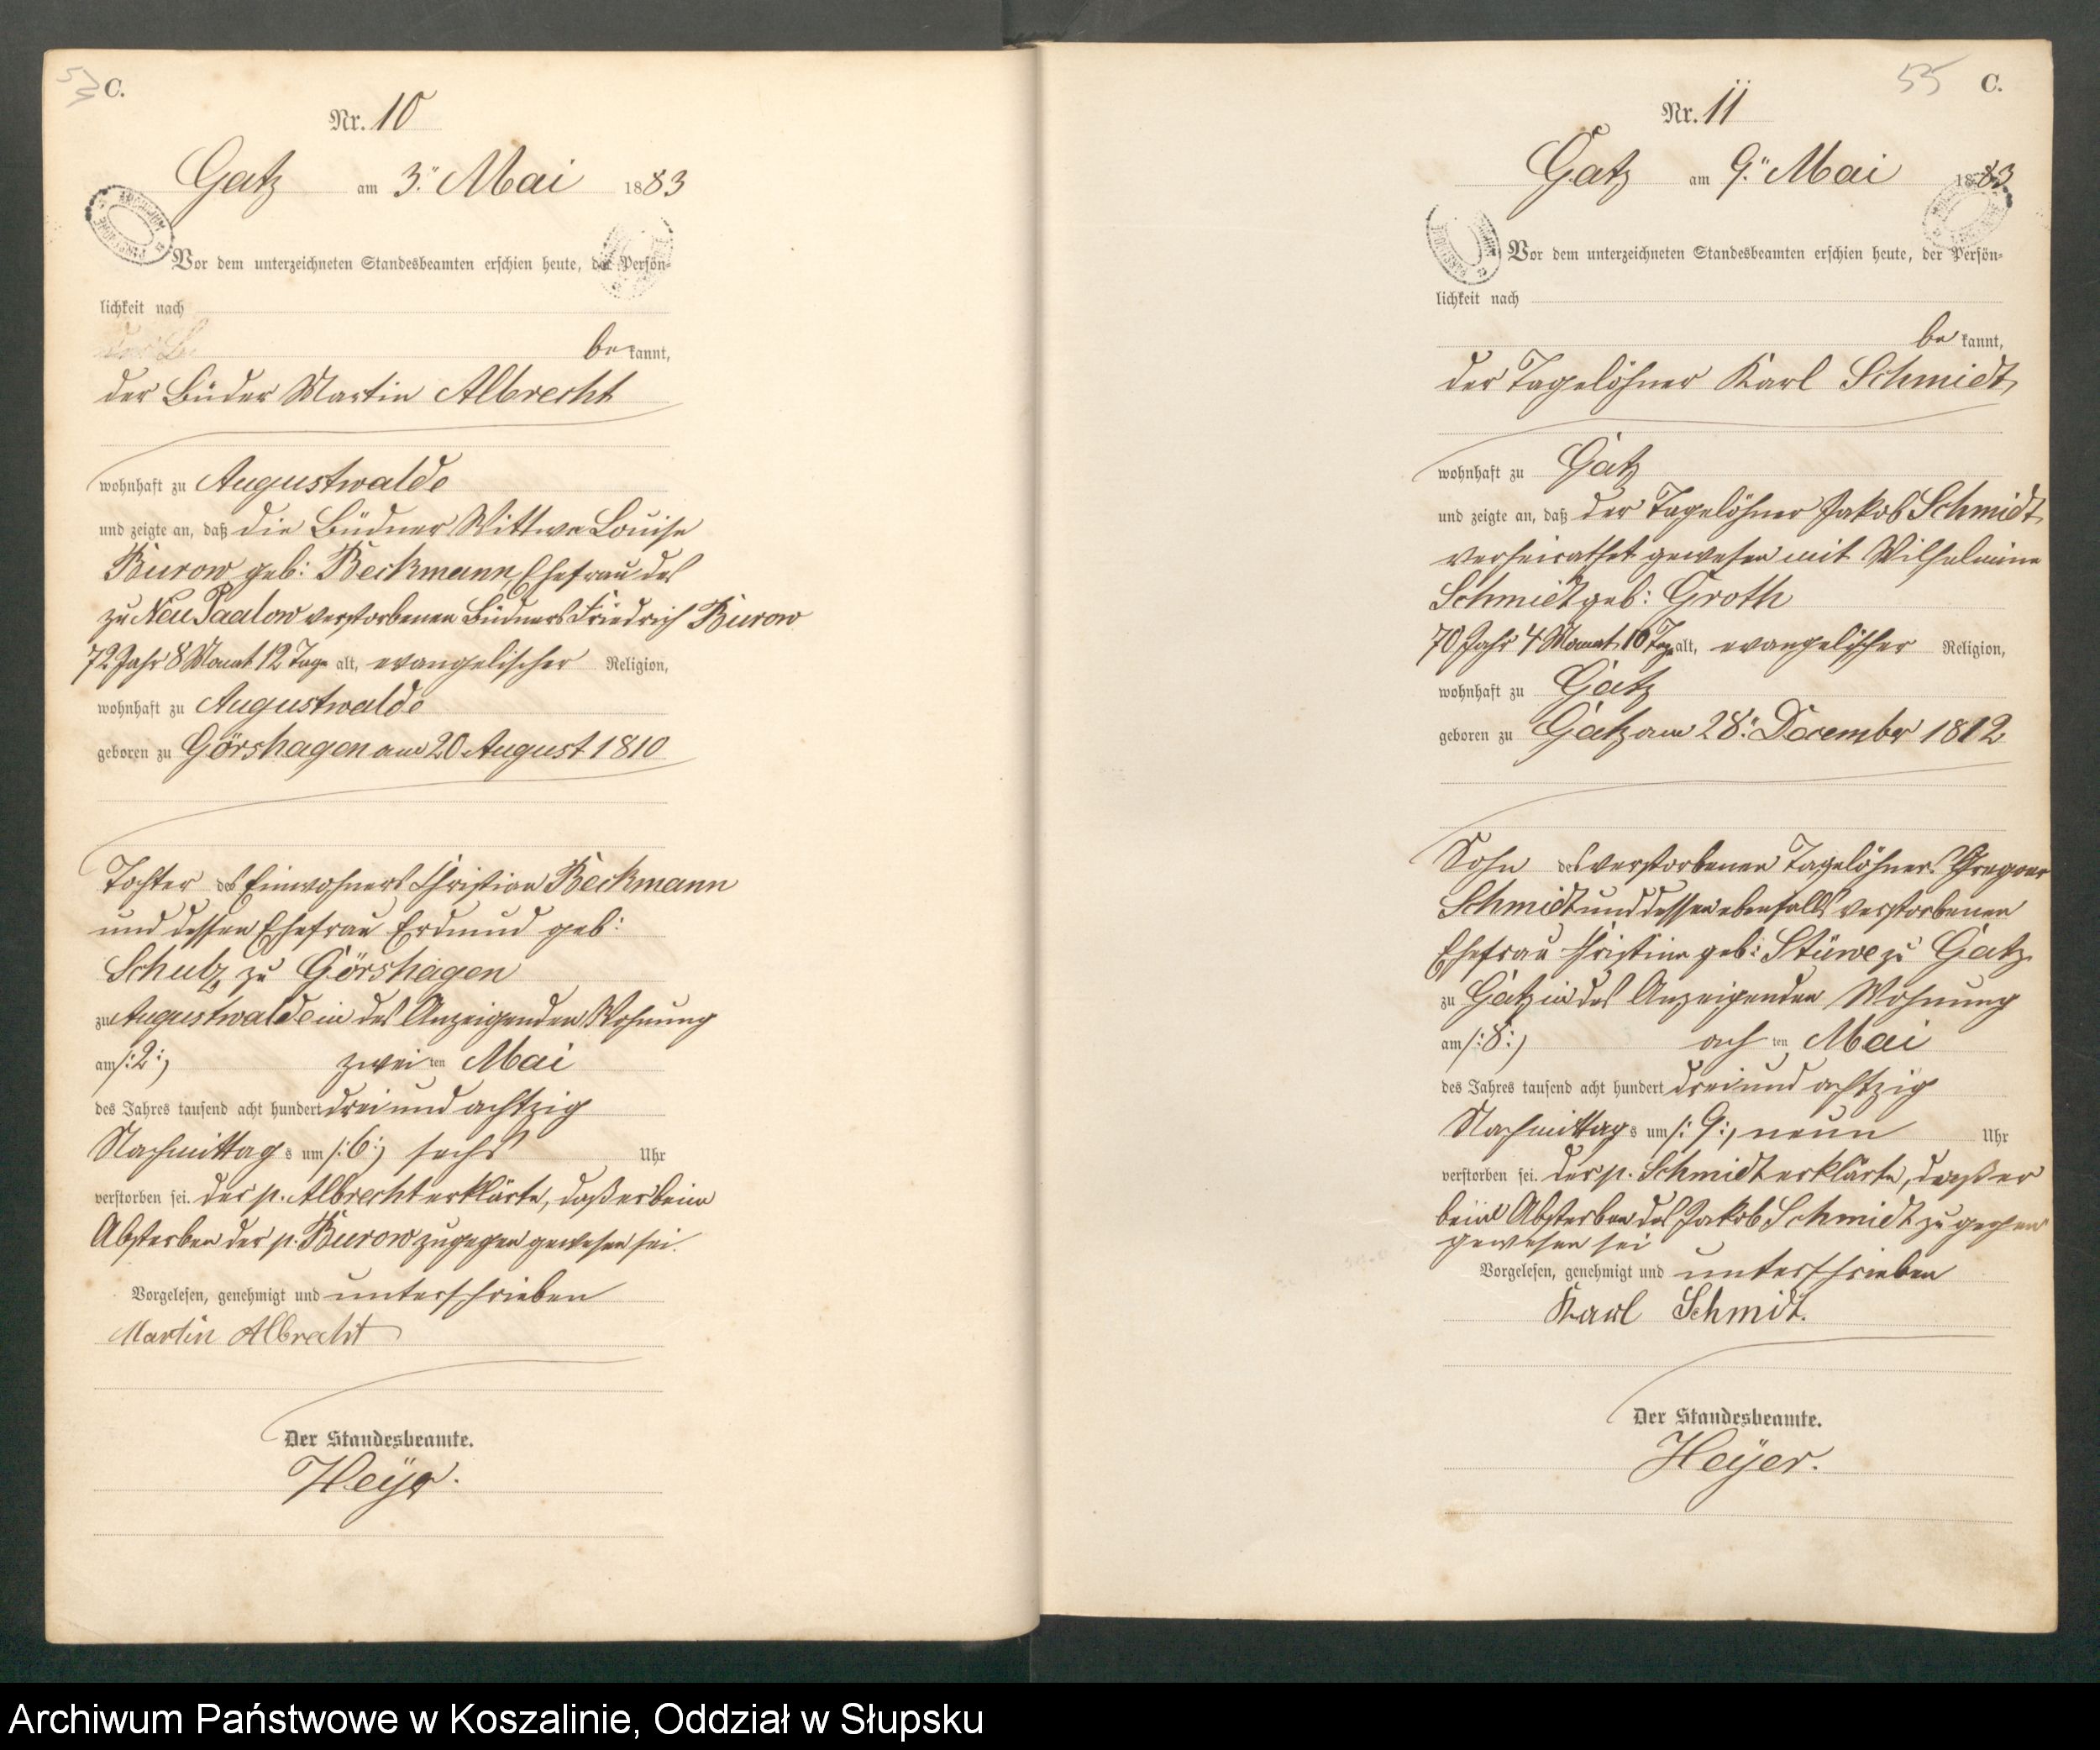 C.
Nr. 10
Gatz am 3. Mai 1883
Vor dem unterzeichneten Standesbeamten erschien heute, der Persön-
lichkeit nach
be kannt,
der Büdner Martin Albrecht
wohnhaft zu Augustwalde
und zeigte an, daß die Büdner Wittwe Louise
Burow geb: Beckmann, Ehefrau des
zu Neu Paalow verstorbenen Büdners Friedrich Burow
72 Jahr 8 Monat 12 Tage alt, evangelischer Religion,
wohnhaft zu Augustwalde
geboren zu Görshagen am 20 August 1810
Tochter des Einwohners Christian Beckmann
und dessen Ehefrau Erdmud geb:
Schulz zu Görshagen
zu Augustwalde in des Anzeigenden Wohnung
am /:2:/ zwei ten Mai
des Jahres tausend acht hundert drei und achtzig
Nachmittag s um /:6:/ sechs Uhr
verstorben sei. der p. Albrecht erklärte, daß er beim
Absterben der p. Burow zugegen gewesen sei.
Vorgelesen, genehmigt und unterschrieben
Martin Albrecht
Der Standesbeamte.
Heÿer.
55 C.
Nr. 11
Gatz am 9. Mai 1883
Vor dem unterzeichneten Standesbeamten erschien heute, der Persön-
lichkeit nach
be kannt,
der Tagelöhner Karl Schmidt,
wohnhaft zu Gatz
und zeigte an, daß der Tagelöhner Jakob Schmidt
verheirathet gewesen mit Wilhelmine
Schmidt geb: Groth
70 Jahr 4 Monat 10 Tage alt, evangelischer Religion,
wohnhaft zu Gatz
geboren zu Gatz am 28. December 1812
Sohn des verstorbenen Tagelöhners
Schmidt und dessen ebenfalls verstorbenen
Ehefrau Christine geb: Stüwe zu Gatz
zu Gatz in des Anzeigenden Wohnung
am /:8:/ ach ten Mai
des Jahres tausend acht hundert drei und achtzig
Nachmittag s um /:9:/ neun Uhr
verstorben sei. der p. Schmidt erklärte, daß er
beim Absterben des Jakob Schmidt zugegen
gewesen sei
Vorgelesen, genehmigt und unterschrieben
Karl Schmidt.
Der Standesbeamte.
Heÿer.
Archiwum Państwowe w Koszalinie, Oddział w Słupsku